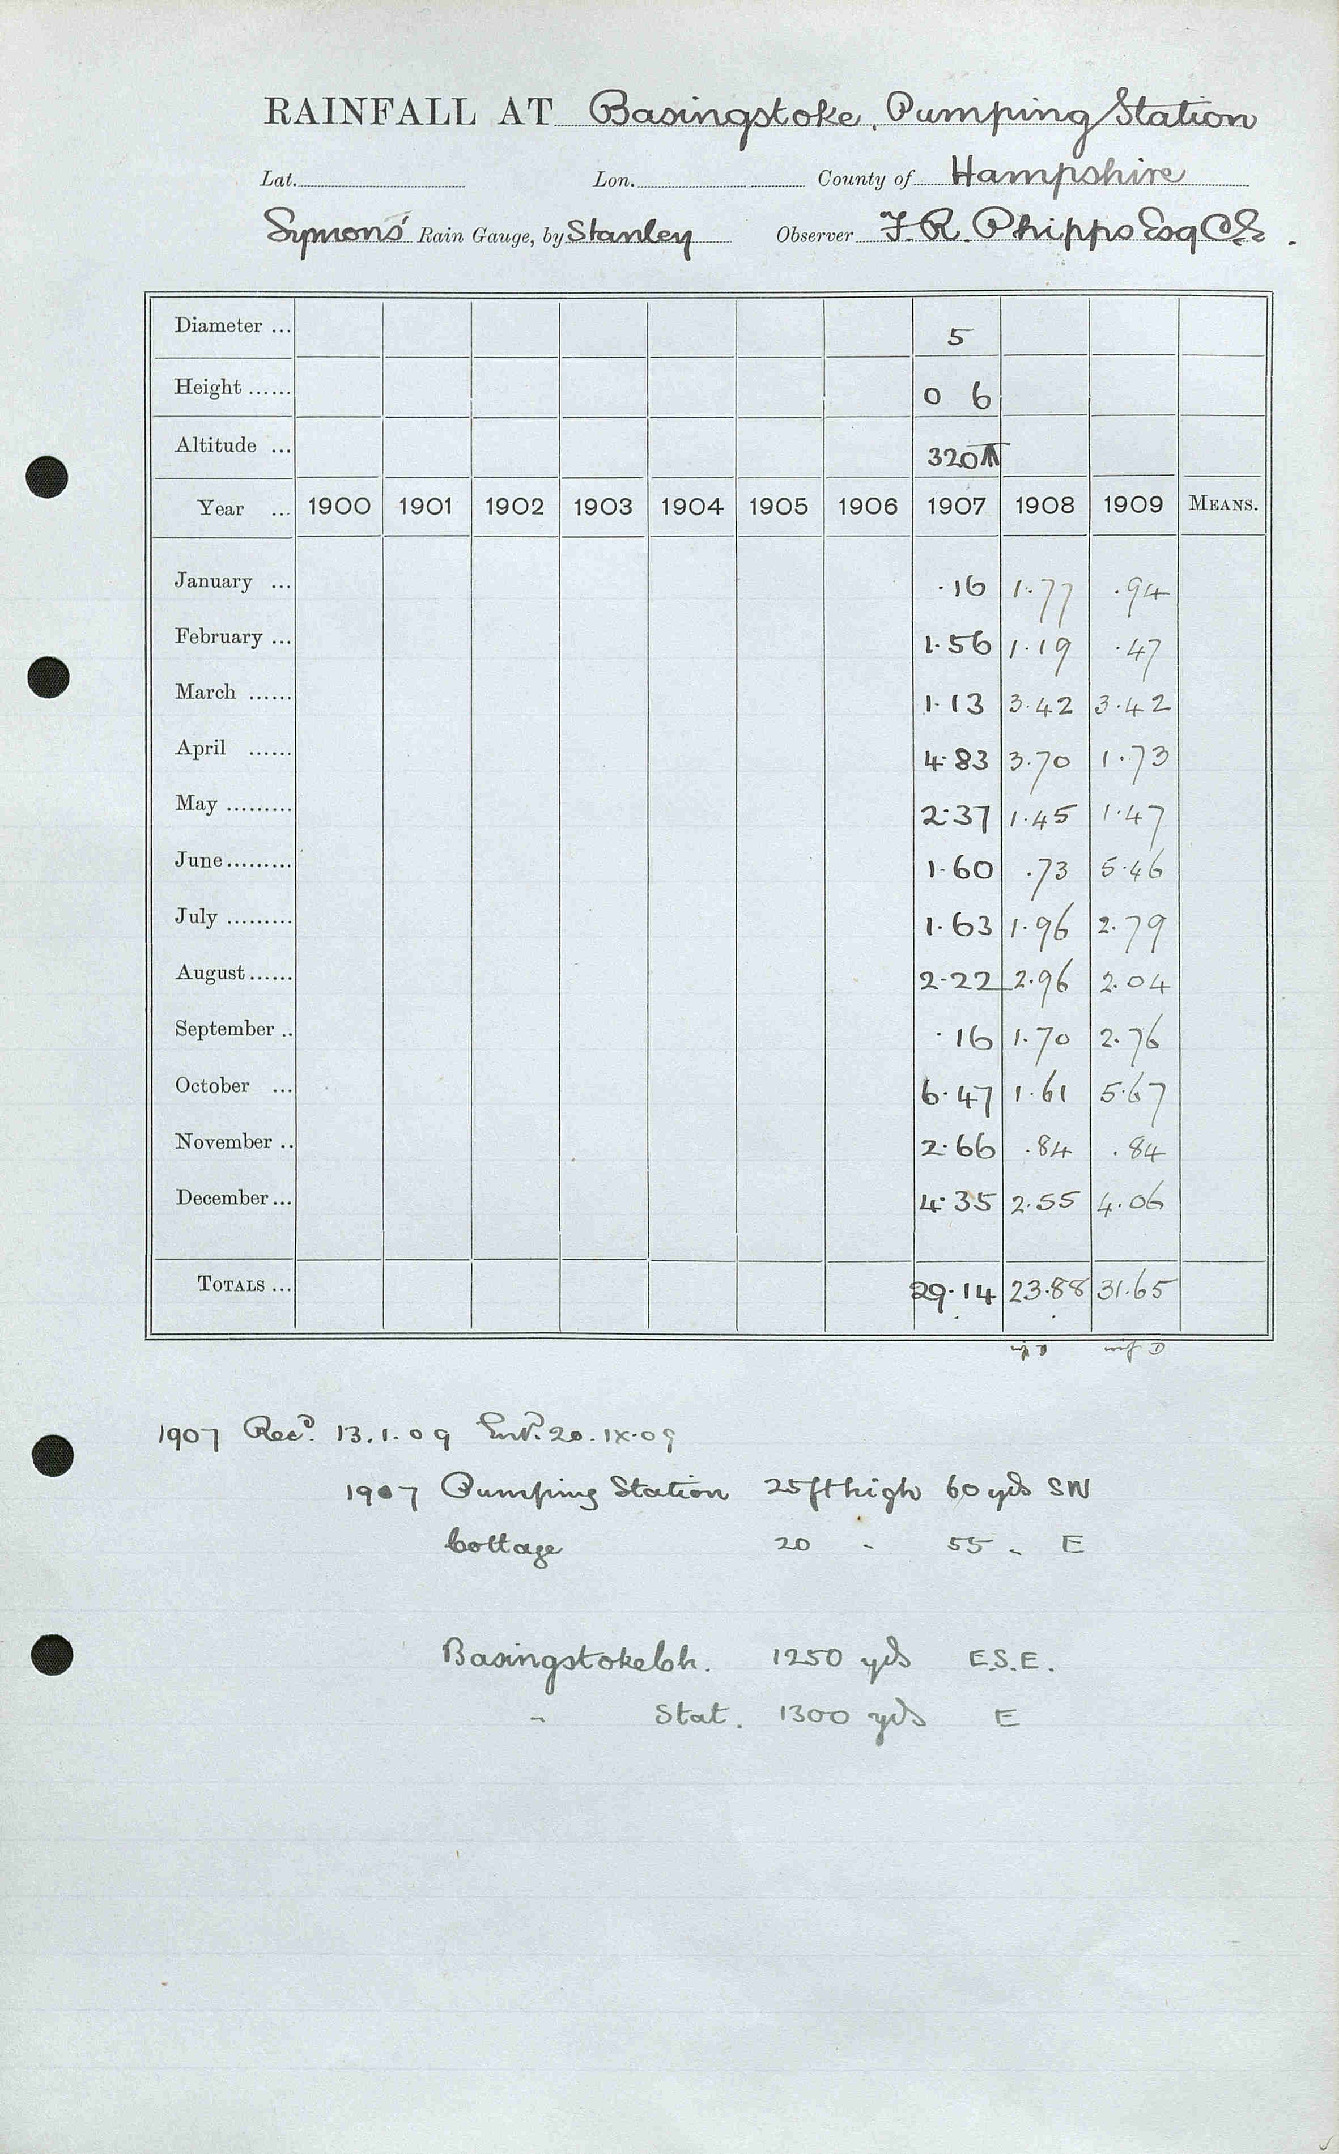 RAINFALL AT Basingstoke, Pumping Station
Lat. Lon. County of Hampshire
Symons' Rain Gauge, by Stanley Observer F. R. Phipps Esq CE.
Diameter ... 5
Height ...... 0 6
Altitude ... 320
Year ... 1900 1901 1902 1903 1904 1905 1906 1907 1908 1909 MEANS.
January ... .16 1.77 .94
February ... 1.56 1.19 .47
March ...... 1.13 3.42 3.42
April ...... 4.83 3.70 1.73
May ......... 2.37 1.45 1.47
June ......... 1.60 .73 5.46
July ......... 1.63 1.96 2.79
August ...... 2.22 2.96 2.04
September .. .16 1.70 2.76
October ... 6.47 1.61 5.67
November .. 2.66 .84 .84
December ... 4.35 2.55 4.06
TOTALS ... 29.14 23.88 31.65
1907 Recd. 13.1.09 Entd. 20.IX.09
1907 Pumping Station 25ft high 60 yds SW
Cottage 20 " 55 " E
Basingstoke Ch. 1250 yds E.S.E.
" Stat. 1300 yds E